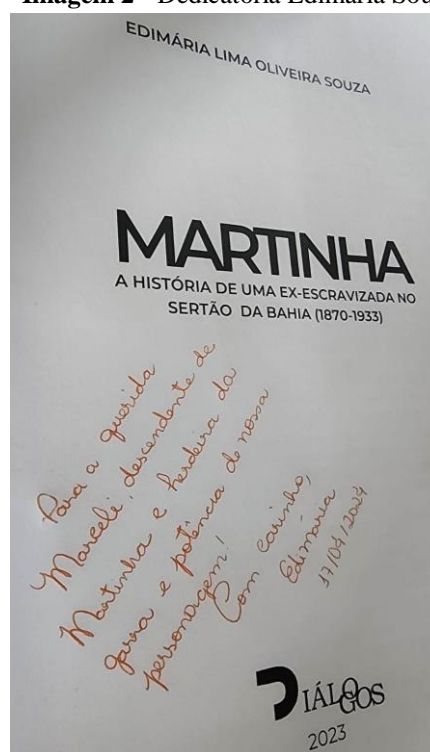 Imagem 2 – Dedicatória Edimária Sou
EDIMÁRIA LIMA OLIVEIRA SOUZA
MARTINHA
A HISTÓRIA DE UMA EX-ESCRAVIZADA NO
SERTÃO DA BAHIA (1870-1933)
Para a querida
Marceli, descendente de
Martinha e herdeira da
garra e potência de nossa
personagem!
Com carinho,
Edimária
17/04/2024
DIÁLOGOS
2023